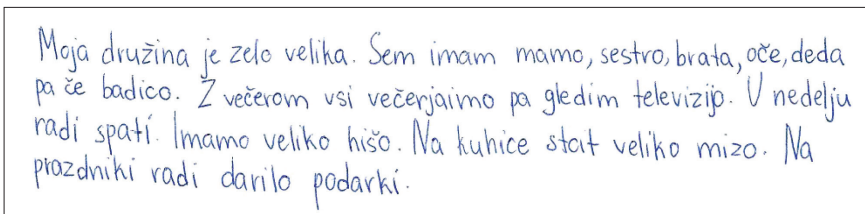 Moja družina je zelo velika. Sem imam mamo, sestro, brata, oče, deda
pa če badico. Z večerom vsi večerjaimo pa gledim televizijo. V nedelju
radi spati. Imamo veliko hišo. Na kuhice stoit veliko mizo. Na
prazdniki radi darilo podarki.